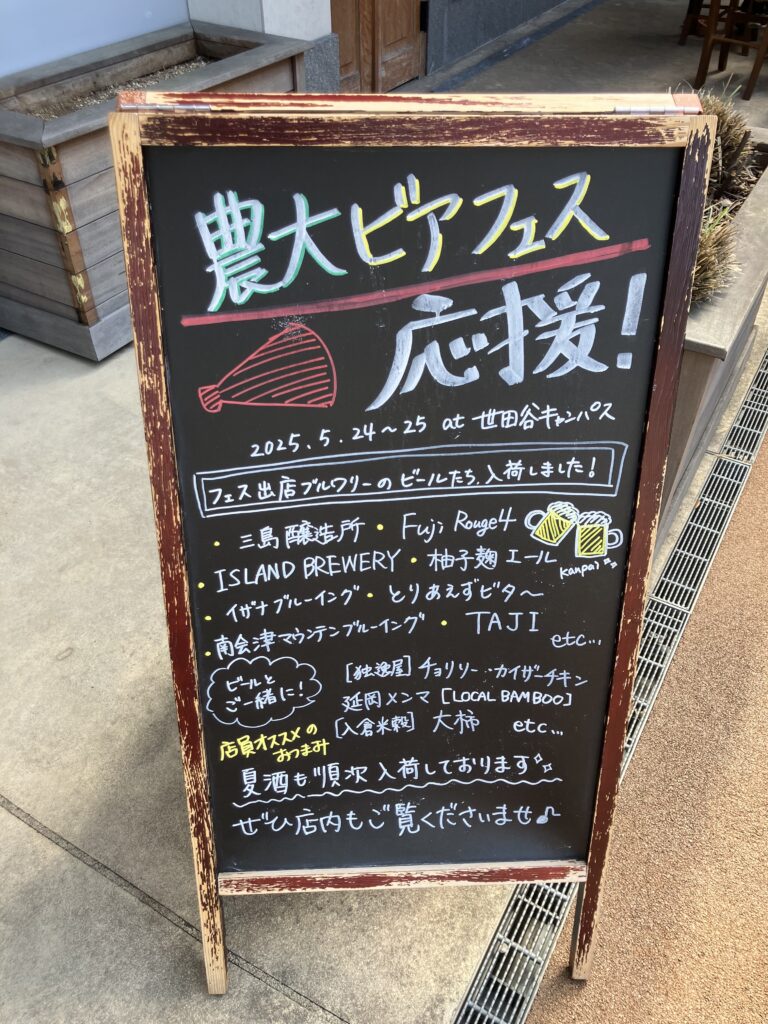 農大ビアフェス
応援!
2025.5.24~25 at 世田谷キャンパス
フェス出店ブルワリーのビールたち、入荷しました!
・三島醸造所・Fuji Rouge4
・ISLAND BREWERY・柚子麹エール
Kanpai
・イザナブルーイング・とりあえずビタ〜
・南会津マウンテンブルーイング・TAJI
etc...
ビールと
ご一緒に!
店員オススメの
おつまみ
[独逸屋] チョリソー・カイザーチキン
延岡メンマ [LOCAL BAMBOO]
[入倉米穀] 大柿 etc...
夏酒も順次入荷しております
ぜひ店内もご覧くださいませ♪